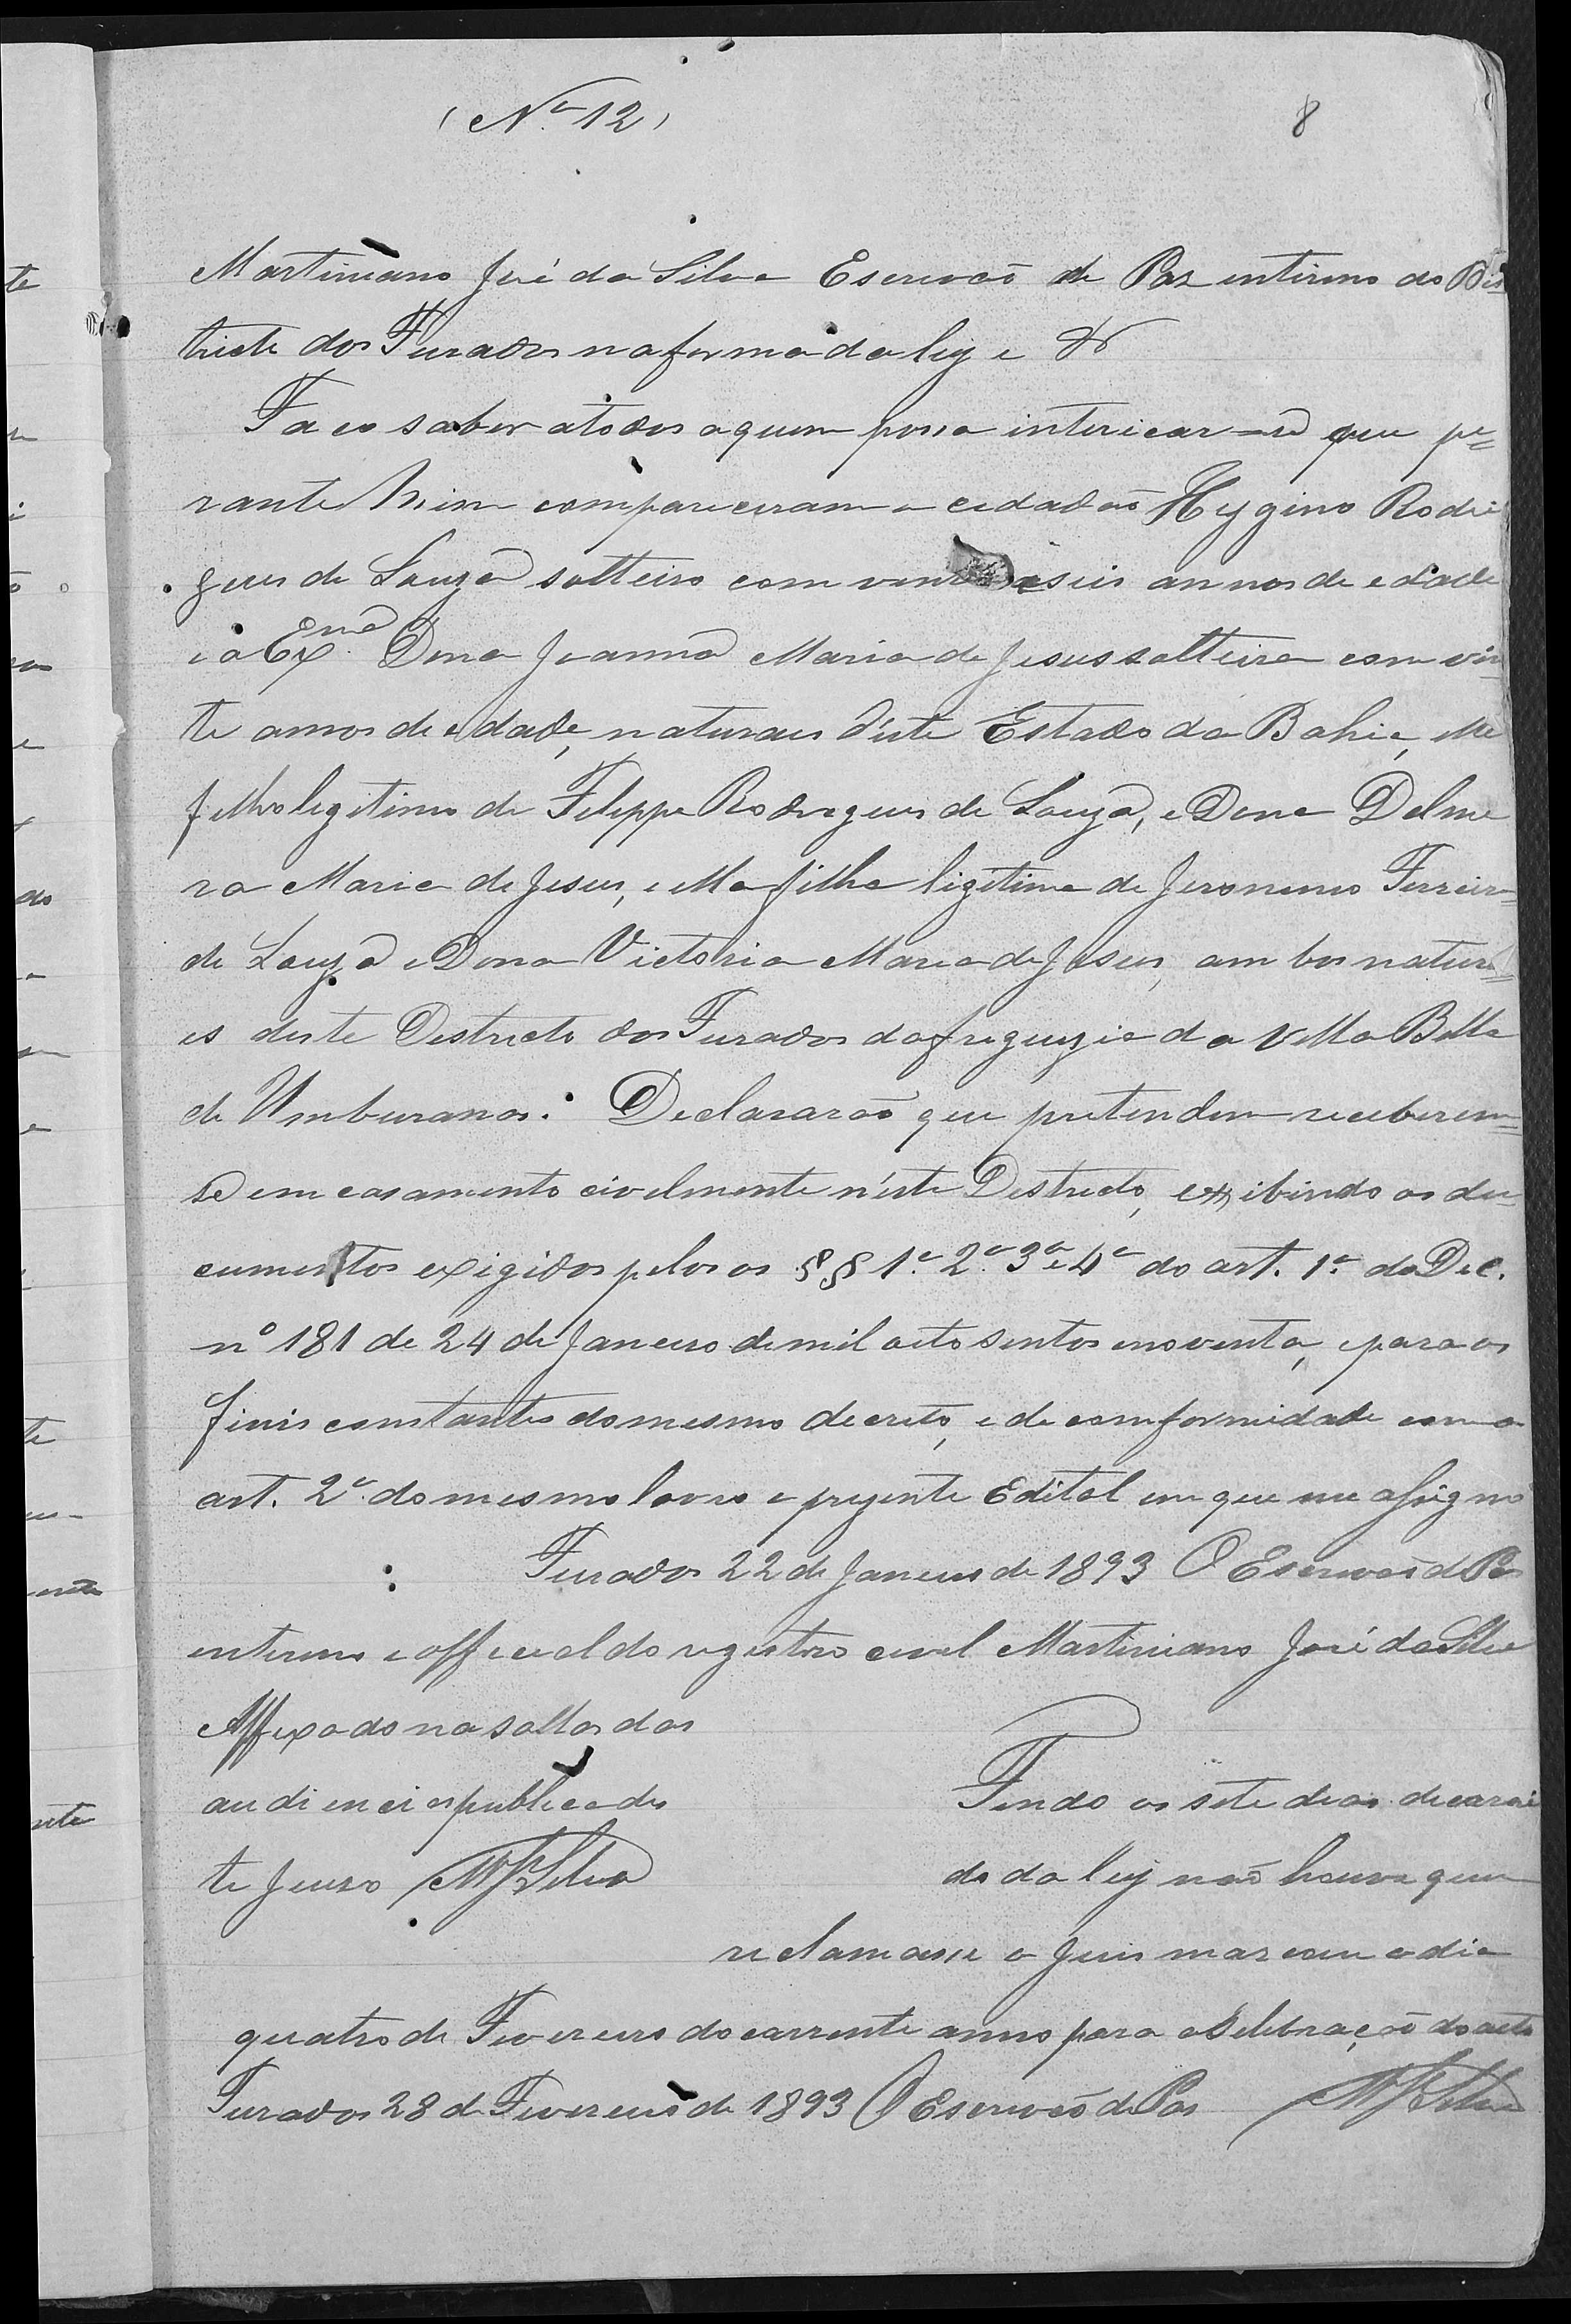 (Nº 12)
8
Martiniano José da Silva Escrivaõ de Paz interino do Dis
tricto dos Furados na forma da ley e &
Faço saber a todos a quem possa intericar-se que pe=
rante mim compareceram o cidadaõ Hygino Rodri
gues de Souza solteiro com vinte e seis annos de edade
e a Exmª Dona Joanna Maria de Jesus solteira com vin
te annos de edade, naturaes d'este Estado da Bahia, elle
filho legitimo de Felippe Rodrigues de Souza, e Dona Delme
ra Maria de Jesus, e ella filha ligitima de Jeronimo Ferreira=
de Souza e Dona Victoria Maria de Jesus, ambos natura=
es deste Destricto dos Furados da freguezia da Villa Bella
de Umburanas. Declararaõ que pretendem receberem=
se em casamento civelmente n'este Destricto, exibindo os du=
cumentos exigidos pelos os §§ 1º 2º 3º e 4º do art. 1º do Dec.
nº 181 de 24 de Janeiro de mil oito sentos e noventa, e para os
fins constantes do mesmo decreto, e de comformidade com o
art. 2º do mesmo lavro o prezente Edital em que me assigno
Furados 22 de Janeiro de 1893 O Escrivaõ de Pas
interino e official do registro civel Martiniano José da Silva
Affixado na salla das
audiencias publica des
te Juizo MJSilva
Findo os sete dias decorri
do da ley naõ houve quem
reclamasse o Juis marcou o dia
quatro de Fevereiro do corrente anno para a Selebraçaõ do acto
Furados 28 de Fevereiro de 1893 O Escrivaõ de Pas MJSilva